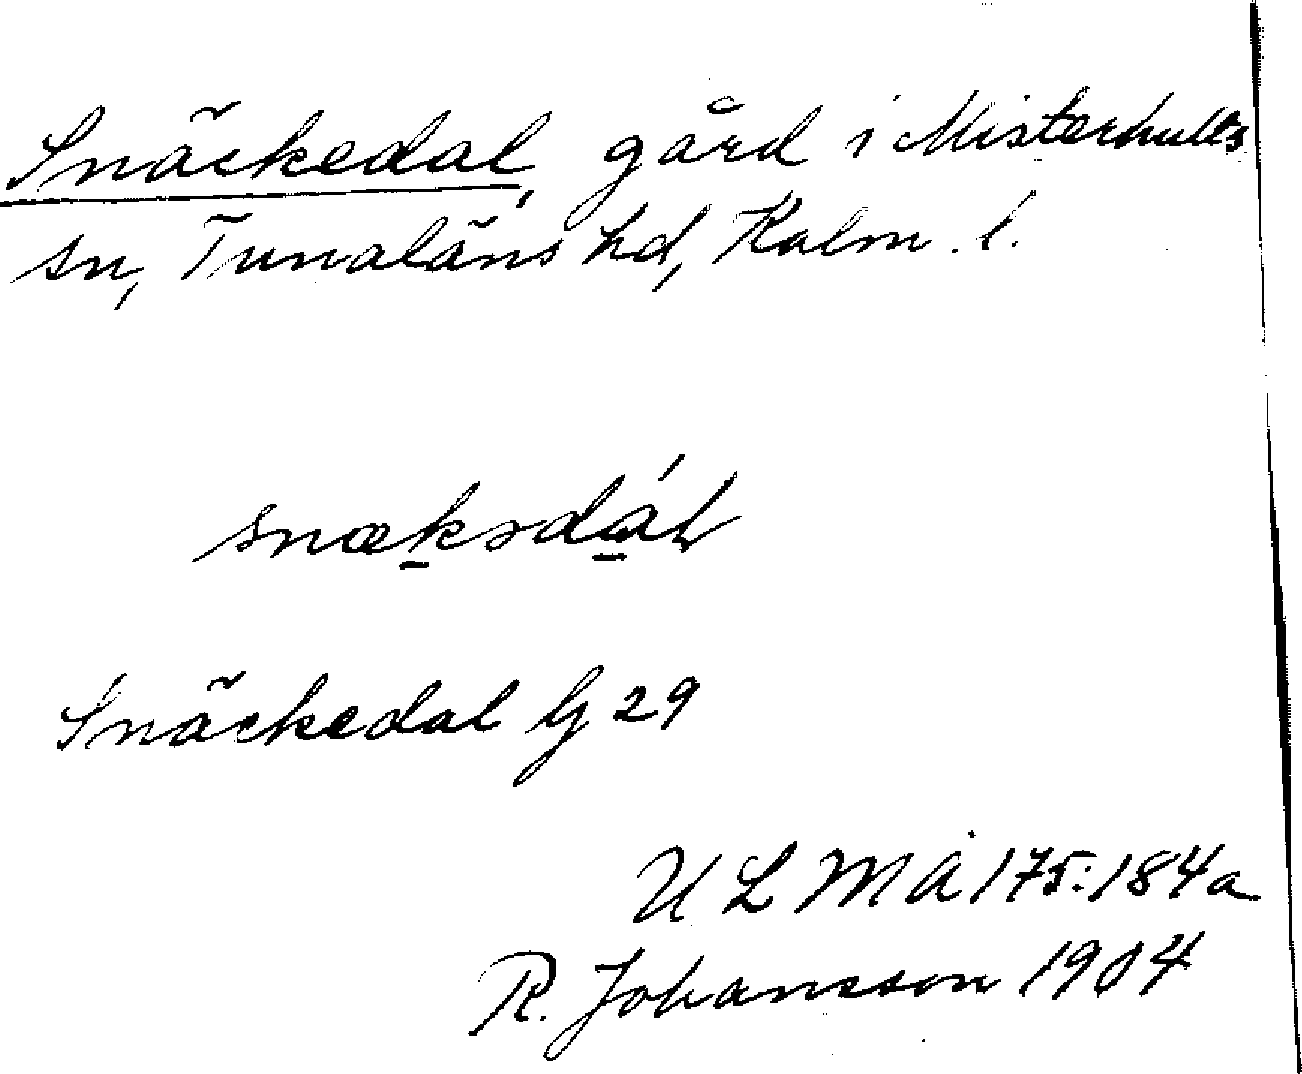 Snäckedal, gård i Misterhults
sn, Tunaläns hd, Kalm. l.
snækədáɫ
Snäckedal G 29
ULMA 175:184a
R. Johansson 1904